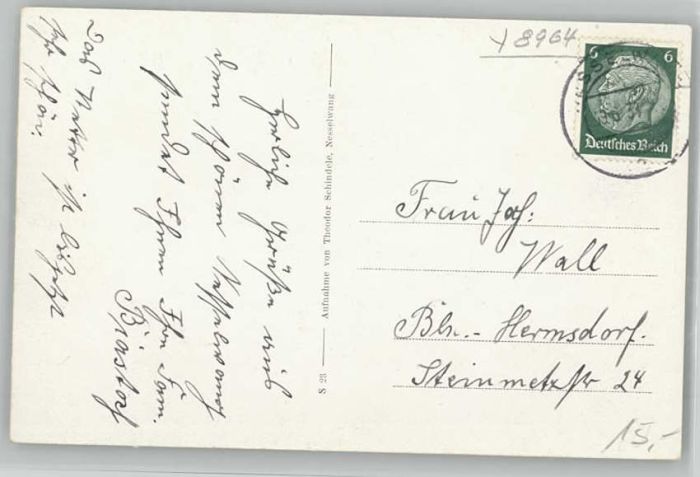 Herzliche Grüße aus
dem schönen Nesselwang
sendet Ihnen Ihre Fam.
Biastoch
Das Wetter ist bis jetzt
sehr schön.
S 23 — Aufnahme von Theodor Schindele, Nesselwang
+ 8964
6 6
Deutsches Reich
Frau Joh:
Wall
Bln.- Hermsdorf.
Steinmetzstr 24
15,-